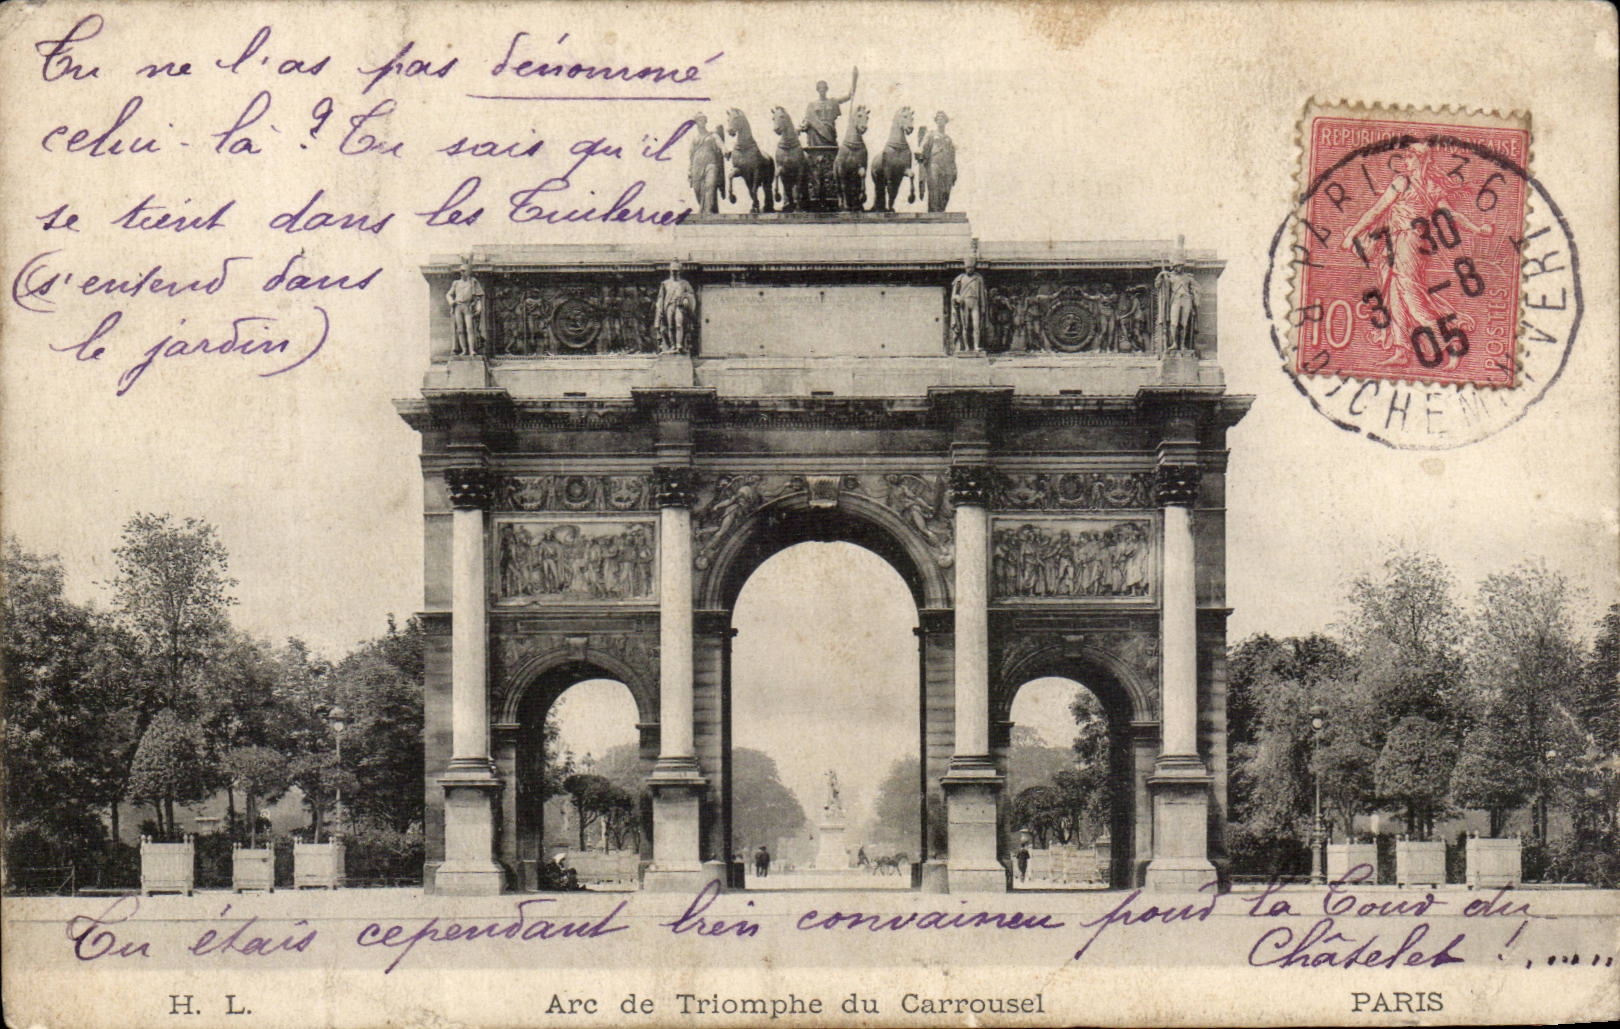 Tu ne l'as pas dénommé
celui-là ? Tu sais qu'il
se tient dans les Tuileries
(s'entend dans
le jardin)
REPUBLIQUE FRANÇAISE
10c
POSTES
PARIS 26
17 30
3 - 8
05
R. DU CHEMIN-VERT
Tu étais cependant bien convaincu pour la Tour du
Châtelet !......
H. L. Arc de Triomphe du Carrousel PARIS